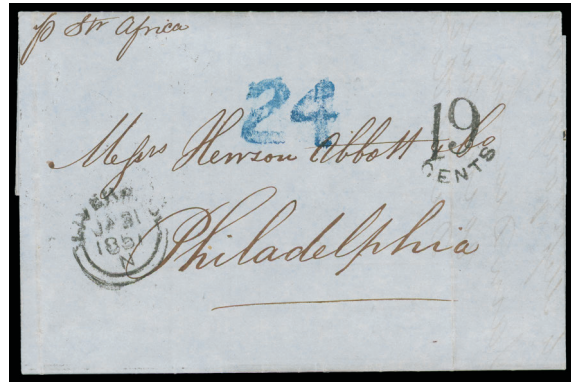 p Str Africa
24
19
CENTS
Messrs Hewson Abbott & Co
LIVER
JA 31
1851
Philadelphia